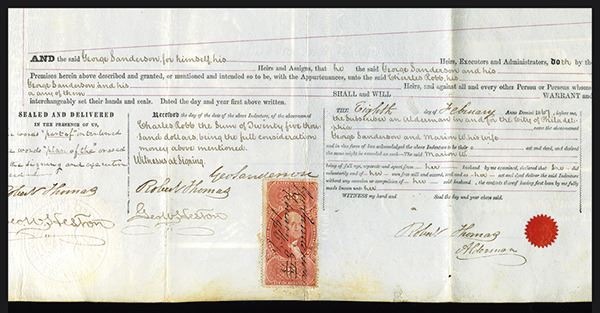 AND the said George Sanderson, for himself, his
Heirs and Assigns, that he the said George Sanderson and his
Heirs, Executors and Administrators, Doth by the
Premises herein above described and granted, or mentioned and intended so to be, with the Appurtenances, unto the said Charles Robb, his
George Sanderson and his
Heirs, and against all and every other Person or Persons whomso
or any of them
SHALL and WILL
WARRANT and
interchangeably set their hands and seals. Dated the day and year first above written.
SEALED AND DELIVERED
IN THE PRESENCE OF US,
Received the day of the date of the above Indenture, of the above-named
Charles Robb the Sum of Twenty five thou
sand dollars being the full consideration
money above mentioned.
Witnesses at Signing.
Geo Sanderson
Robert Thomas
Geo W Heston
Robert Thomas
Geo W Heston
THE Eighth day of February Anno Domini
before me,
the Subscriber an Alderman in and for the City of Philadel
phia
George Sanderson and Marion his wife
and in due form of law acknowledged the above Indenture to be their
act and deed, and desired
the same might be recorded as such. The said Marion
being of full age, separate and apart from her husband by me examined, declared that she did
voluntarily and of her own free will and accord, and as her act and deed deliver the said Indenture
without any coercion or compulsion of her said husband, the contents thereof having first been by me fully
made known unto her
WITNESS my hand and Seal the day and year above said.
Robert Thomas
Alderman